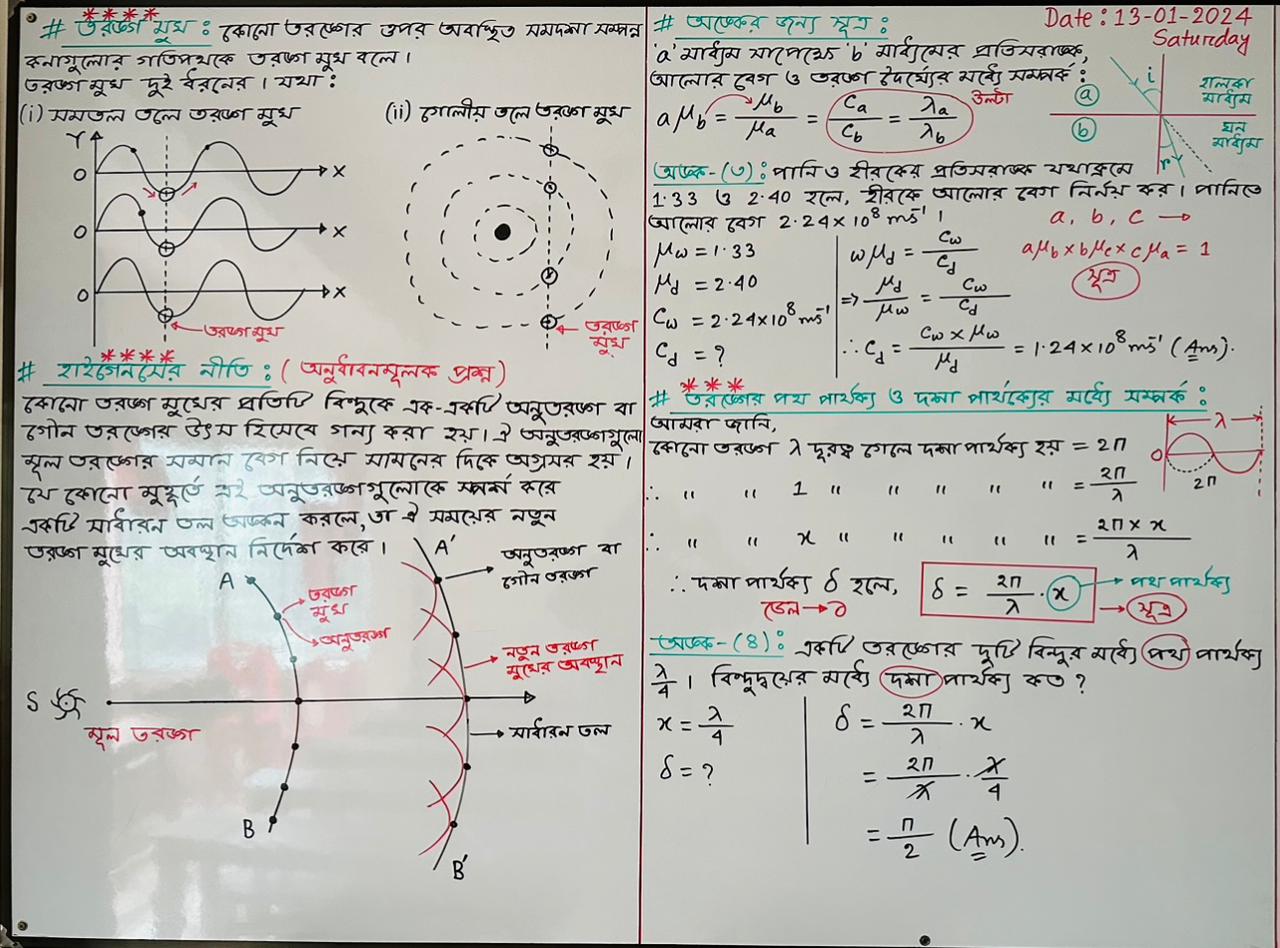 # তরঙ্গ মুখ : কোনো তরঙ্গের ওপর অবস্থিত সমদশা সম্পন্ন
কনাগুলোর গতিপথকে তরঙ্গ মুখ বলে।
তরঙ্গ মুখ দুই ধরনের। যথা :
(i) সমতল তলে তরঙ্গ মুখ
(ii) গোলীয় তলে তরঙ্গ মুখ
Y
O
X
O
X
O
X
তরঙ্গ মুখ
তরঙ্গ
মুখ
# হাইগেনসের নীতি : (অনুধাবনমূলক প্রশ্ন)
কোনো তরঙ্গ মুখের প্রতিটি বিন্দুকে এক-একটি অনুতরঙ্গ বা
গৌন তরঙ্গের উৎস হিসেবে গন্য করা হয়। ঐ অনুতরঙ্গগুলো
মূল তরঙ্গের সমান বেগ নিয়ে সামনের দিকে অগ্রসর হয়।
যে কোনো মুহূর্তে এই অনুতরঙ্গগুলোকে স্পর্শ করে
একটি সাধারন তল অঙ্কন করলে, তা ঐ সময়ের নতুন
তরঙ্গ মুখের অবস্থান নির্দেশ করে।
A
তরঙ্গ
মুখ
অনুতরঙ্গ
S
মূল তরঙ্গ
B
A′
অনুতরঙ্গ বা
গৌন তরঙ্গ
নতুন তরঙ্গ
মুখের অবস্থান
সাধারন তল
B′
Date : 13-01-2024
Saturday
# অঙ্কের জন্য সূত্র :
'a' মাধ্যম সাপেক্ষে 'b' মাধ্যমের প্রতিসরাঙ্ক,
আলোর বেগ ও তরঙ্গ দৈর্ঘ্যের মধ্যে সম্পর্ক :
aμb = μb/μa = Ca/Cb = λa/λb
উল্টা
i
a
হালকা
মাধ্যম
b
ঘন
মাধ্যম
r
অঙ্ক-(৩) : পানি ও হীরকের প্রতিসরাঙ্ক যথাক্রমে
1.33 ও 2.40 হলে, হীরকে আলোর বেগ নির্নয় কর। পানিতে
আলোর বেগ 2.24×10⁸ ms⁻¹।
μw = 1.33
μd = 2.40
Cw = 2.24×10⁸ ms⁻¹
Cd = ?
wμd = Cw/Cd
⇒ μd/μw = Cw/Cd
∴ Cd = Cw × μw/μd = 1.24×10⁸ ms⁻¹ (Ans).
a, b, c →
aμb × bμc × cμa = 1
সূত্র
# তরঙ্গের পথ পার্থক্য ও দশা পার্থক্যের মধ্যে সম্পর্ক :
আমরা জানি,
কোনো তরঙ্গ λ দূরত্ব গেলে দশা পার্থক্য হয় = 2π
∴ " " 1 " " " " " = 2π/λ
∴ " " x " " " " " = 2π × x/λ
λ
O
2π
∴ দশা পার্থক্য δ হলে, δ = 2π/λ · x → পথ পার্থক্য
ডেল → δ
সূত্র
অঙ্ক-(৪) : একটি তরঙ্গের দুটি বিন্দুর মধ্যে পথ পার্থক্য
λ/4। বিন্দুদ্বয়ের মধ্যে দশা পার্থক্য কত ?
x = λ/4
δ = ?
δ = 2π/λ · x
= 2π/λ · λ/4
= π/2 (Ans).